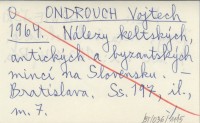 O ONDROUCH Vojtech
1964. Nálezy keltských,
antických a byzantských
mincí na Slovensku. -
Bratislava. Ss. 197, il.,
m. 7.